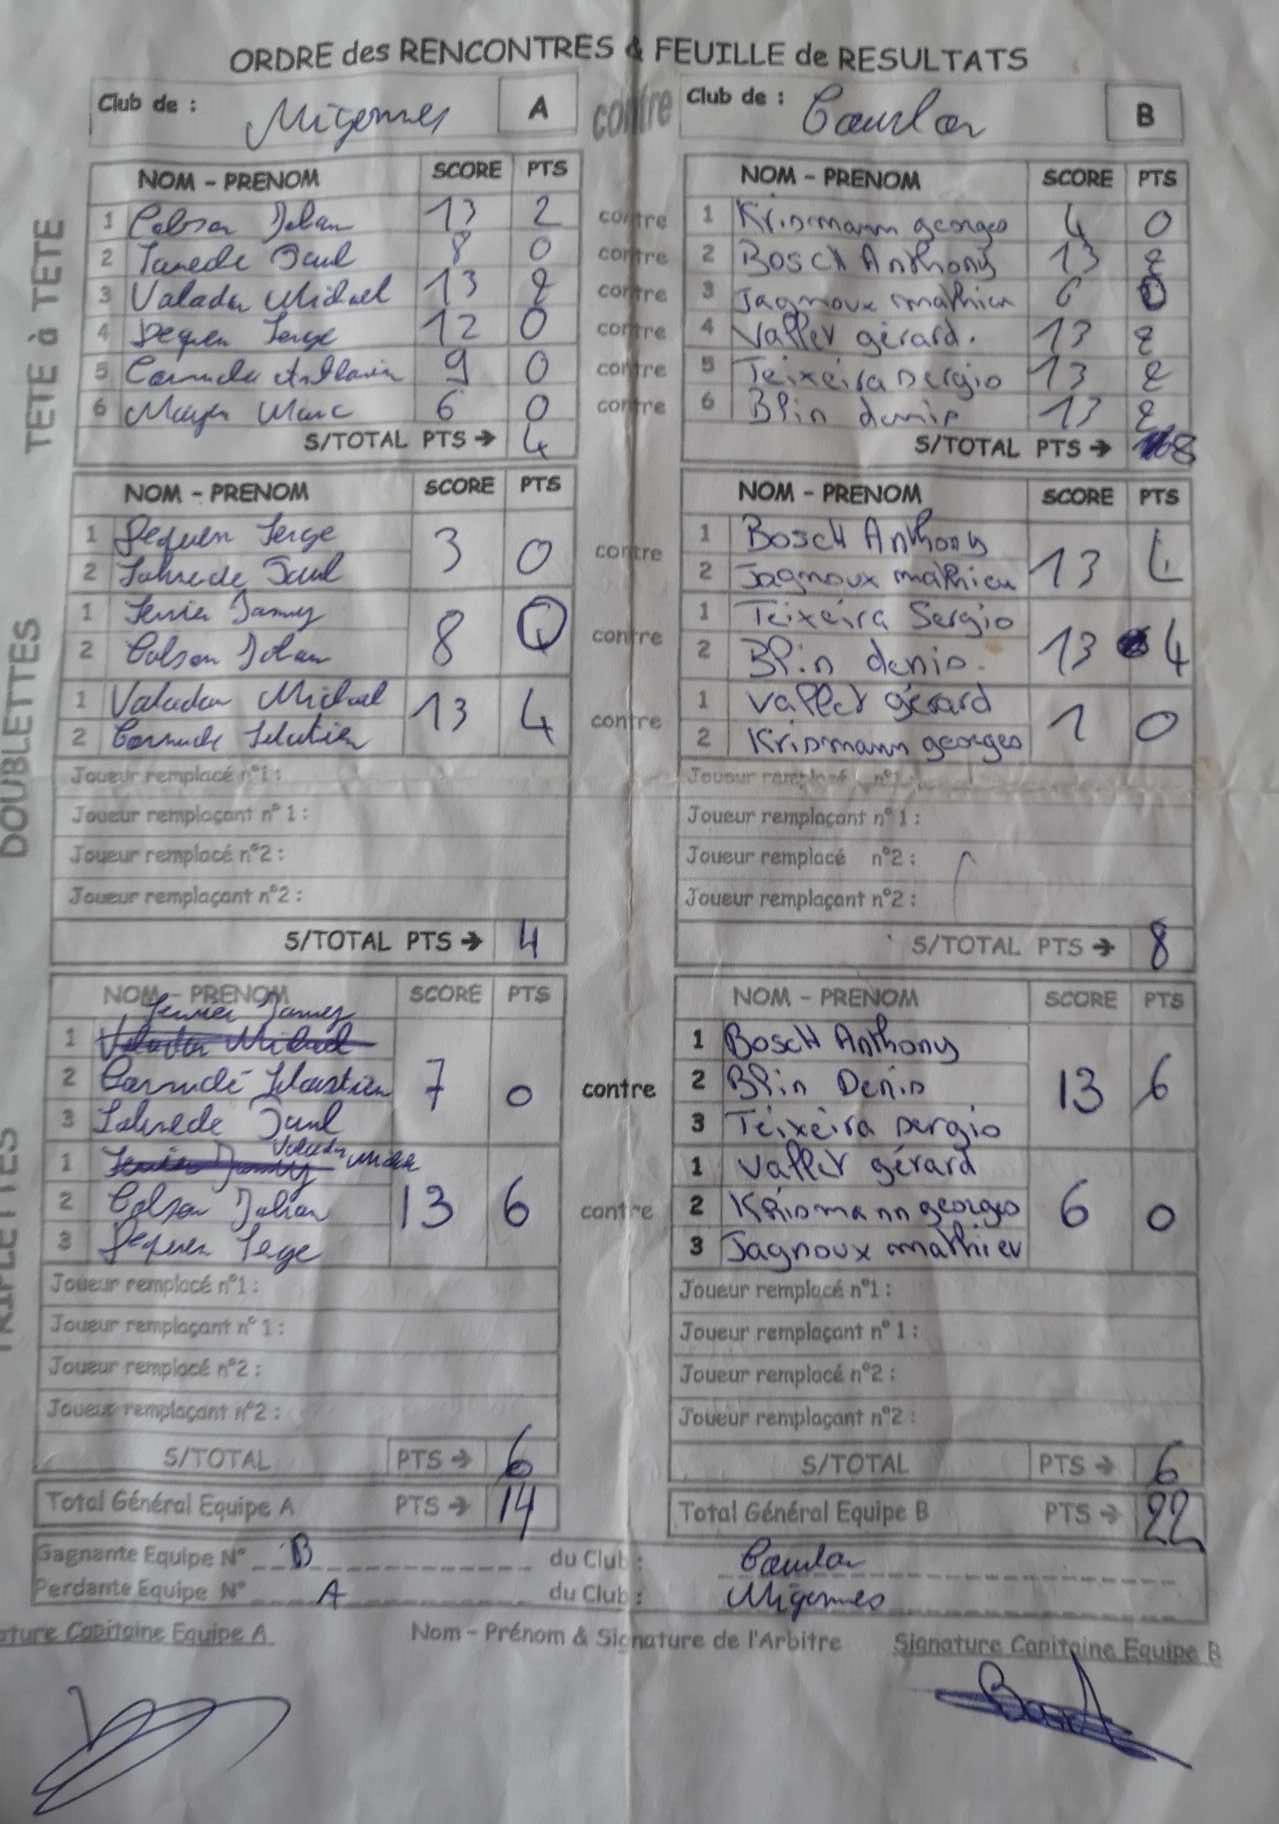 ORDRE des RENCONTRES & FEUILLE de RESULTATS
Club de : Migennes A contre Club de : Courlon B
TETE à TETE
NOM - PRENOM SCORE PTS NOM - PRENOM SCORE PTS
1 Colson Johan 13 2 contre 1 Krismann georges 4 0
2 Paul 8 0 contre 2 Bosch Anthony 13 2
3 Valadar Michael 13 2 contre 3 Jagnoux mathieu 6 0
4 Pequen Serge 12 0 contre 4 Vallet gérard. 13 2
5 9 0 contre 5 Teixeira sergio 13 2
6 Mayer Marc 6 0 contre 6 Blin denis 13 2
S/TOTAL PTS → 4 S/TOTAL PTS → 8
DOUBLETTES
NOM - PRENOM SCORE PTS NOM - PRENOM SCORE PTS
1 Pequen Serge 3 0 contre 1 Bosch Anthony 13 4
2 Paul 2 Jagnoux mathieu
1 Janny 8 0 contre 1 Teixeira Sergio 13 4
2 Colson Johan 2 Blin denis.
1 Valadar Michael 13 4 contre 1 Vallet gérard 1 0
2 2 Krismann georges
Joueur remplacé n°1 : Joueur remplacé n°1 :
Joueur remplaçant n° 1 : Joueur remplaçant n° 1 :
Joueur remplacé n°2 : Joueur remplacé n°2 :
Joueur remplaçant n°2 : Joueur remplaçant n°2 :
S/TOTAL PTS → 4 S/TOTAL PTS → 8
TRIPLETTES
NOM - PRENOM SCORE PTS NOM - PRENOM SCORE PTS
Janny
1 Valadar Michael 7 0 contre 1 Bosch Anthony 13 6
2 Sébastien 2 Blin Denis
3 Paul 3 Teixeira sergio
Valadar
1 Janny 13 6 contre 1 Vallet gérard 6 0
2 Colson Johan 2 Krismann georges
3 Pequen Serge 3 Jagnoux mathieu
Joueur remplacé n°1 : Joueur remplacé n°1 :
Joueur remplaçant n° 1 : Joueur remplaçant n° 1 :
Joueur remplacé n°2 : Joueur remplacé n°2 :
Joueur remplaçant n°2 : Joueur remplaçant n°2 :
S/TOTAL PTS → 6 S/TOTAL PTS → 6
Total Général Equipe A PTS → 14 Total Général Equipe B PTS → 22
Gagnante Equipe N° B du Club : Courlon
Perdante Equipe N° A du Club : Migennes
ature Capitaine Equipe A Nom - Prénom & Signature de l'Arbitre Signature Capitaine Equipe B